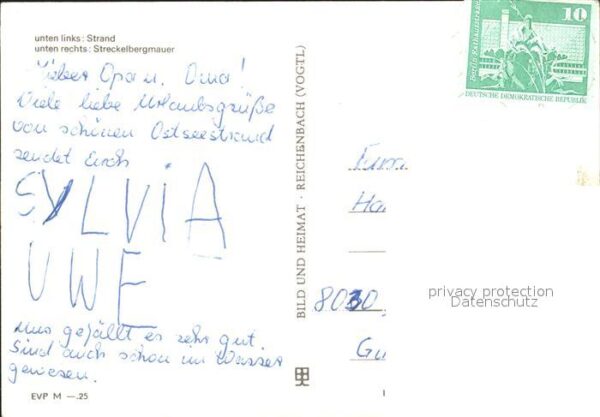 unten links: Strand
unten rechts: Streckelbergmauer
Lieber Opa u. Oma!
Viele liebe Urlaubsgrüße
von schönen Ostseestrand
sendet Euch
SYLVIA
UWE
Uns gefällt es sehr gut.
Sind auch schon im Wasser
gewesen.
EVP M —.25
BILD UND HEIMAT · REICHENBACH (VOGTL)
10
DEUTSCHE DEMOKRATISCHE REPUBLIK
8030
Gu
privacy protection
Datenschutz